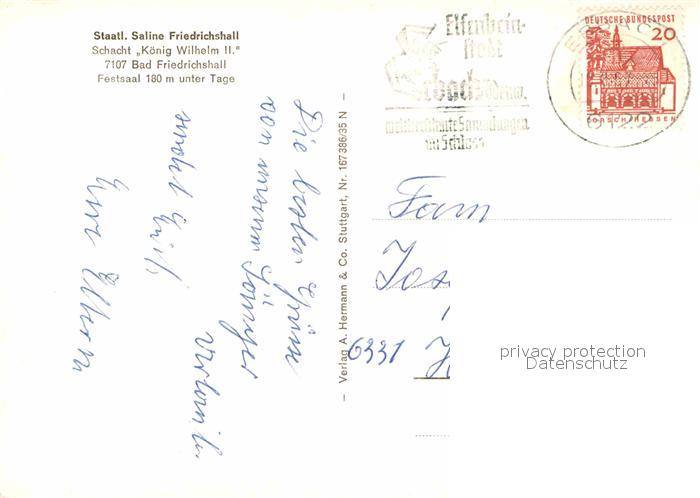 Staatl. Saline Friedrichshall
Schacht „König Wilhelm II.“
7107 Bad Friedrichshall
Festsaal 180 m unter Tage
Die besten Grüße
von unserm
sendet Euch
Eure Eltern
– Verlag A. Hermann & Co. Stuttgart, Nr. 167 386/35 N –
Elfenbein-
stadt
Erbach Odenw.
weltberühmte Sammlungen
im Schloss
ERBACH
6122
DEUTSCHE BUNDESPOST
20
LORSCH/HESSEN
Fam
Jos
6331
privacy protection
Datenschutz